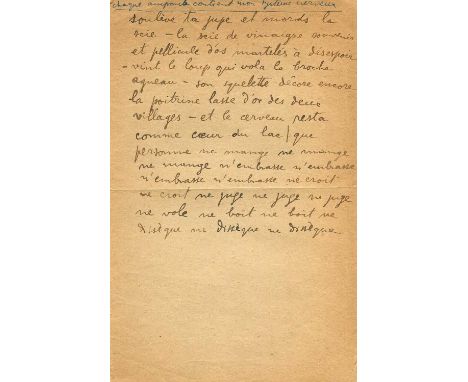 chaque ampoule contient mon système nerveux
soulève ta jupe et mords la
scie - la scie de vinaigre souvenir
et pellicule d'os martelés à désespoir
- vint le loup qui vola la broche
agneau - son squelette décore encore
la poitrine lasse d'or des deux
villages - et le cerveau resta
comme cœur du lac / que
personne ne mange ne mange
ne mange n'embrasse n'embrasse
n'embrasse n'embrasse ne croit
ne croit ne juge ne juge ne juge
ne vole ne boit ne boit ne
dissèque ne dissèque ne dissèque